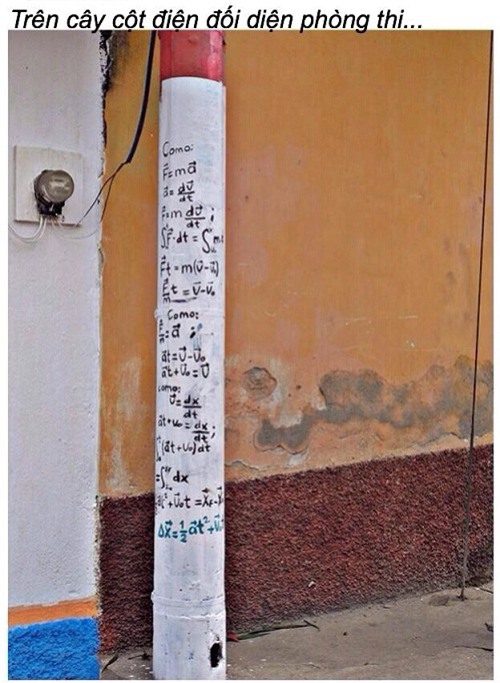 Trên cây cột điện đối diện phòng thi...
Como:
F⃗=ma⃗
a⃗=dv⃗/dt
F⃗=m dv⃗/dt ;
∫F⃗·dt=∫m
F⃗t=m(v⃗-v⃗₀)
F⃗/m t=v⃗-v⃗₀
Como:
F⃗/m=a⃗ ;
a⃗t=v⃗-v⃗₀
a⃗t+v⃗₀=v⃗
Como:
v⃗=dx/dt
a⃗t+v₀=dx/dt ;
∫(a⃗t+v₀)dt
=∫dx
t²+v⃗₀t=x⃗f-x⃗
Δx⃗=½a⃗t²+v⃗